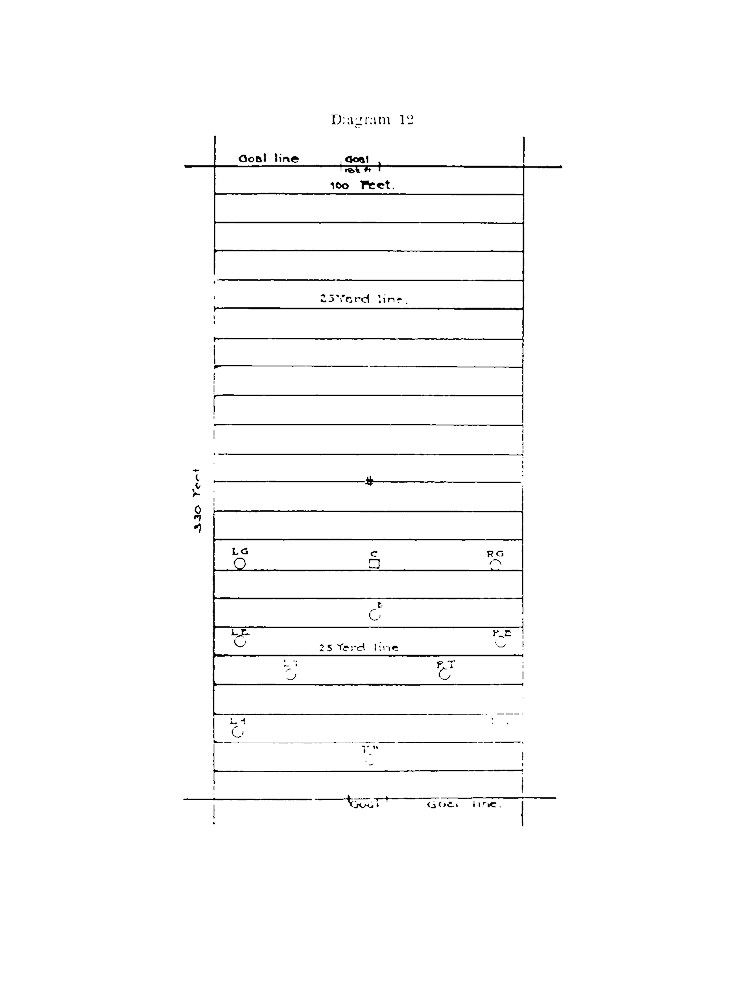 Diagram 12
Goal line Goal
18½ ft
100 Feet.
25 Yard line.
330 Feet
LG C RG
LE
25 Yard line
RT
Goal Goal line.